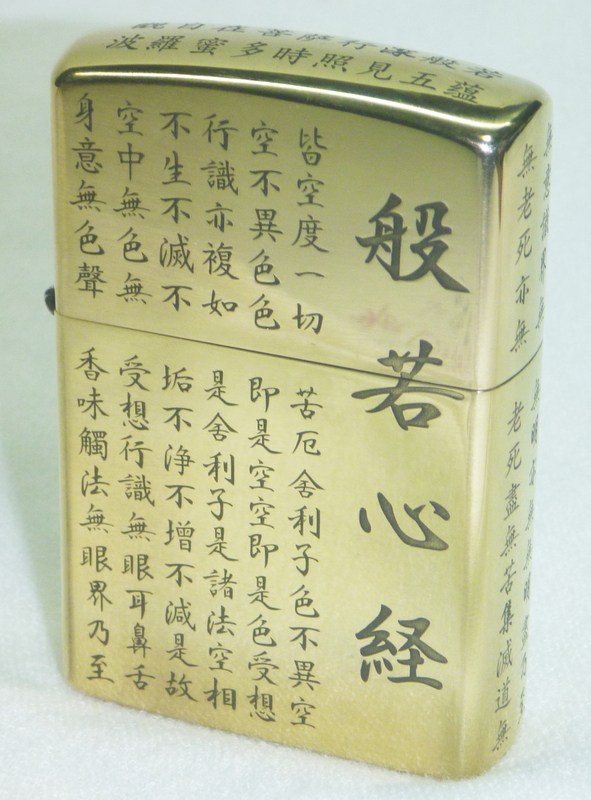 観自在菩薩行深般若
波羅蜜多時照見五蘊
般若心経
皆空度一切苦厄舎利子色不異空
空不異色色即是空空即是色受想
行識亦複如是舎利子是諸法空相
不生不滅不垢不浄不増不減是故
空中無色無受想行識無眼耳鼻舌
身意無色聲香味觸法無眼界乃至
無意識界無無明亦無無明盡乃至
無老死亦無老死盡無苦集滅道無